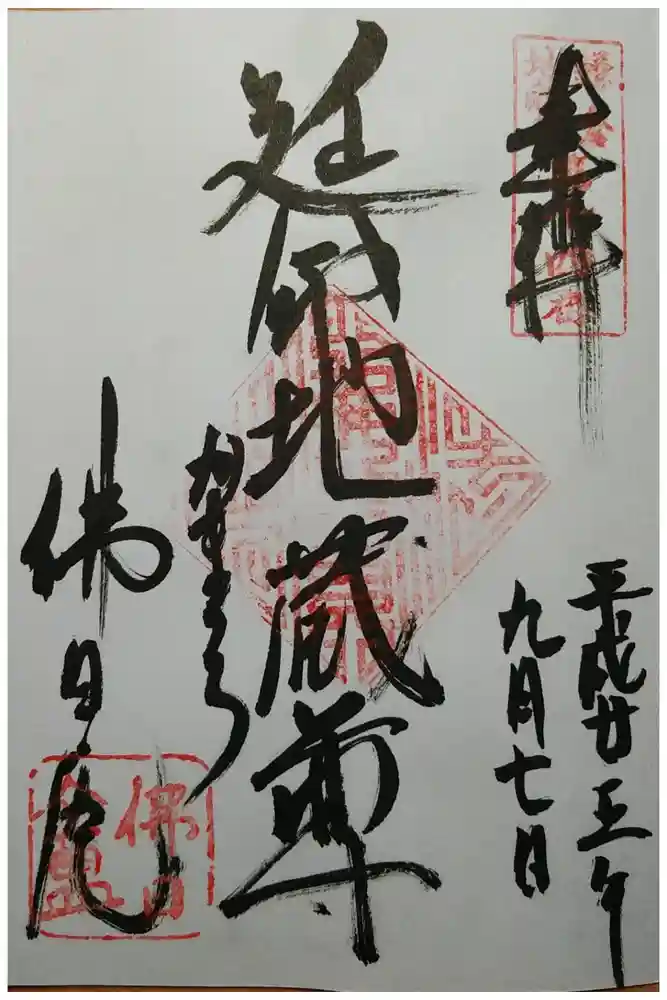 奉拝
平成廿五年
九月七日
延命地蔵尊
かまくら
佛日庵
佛日